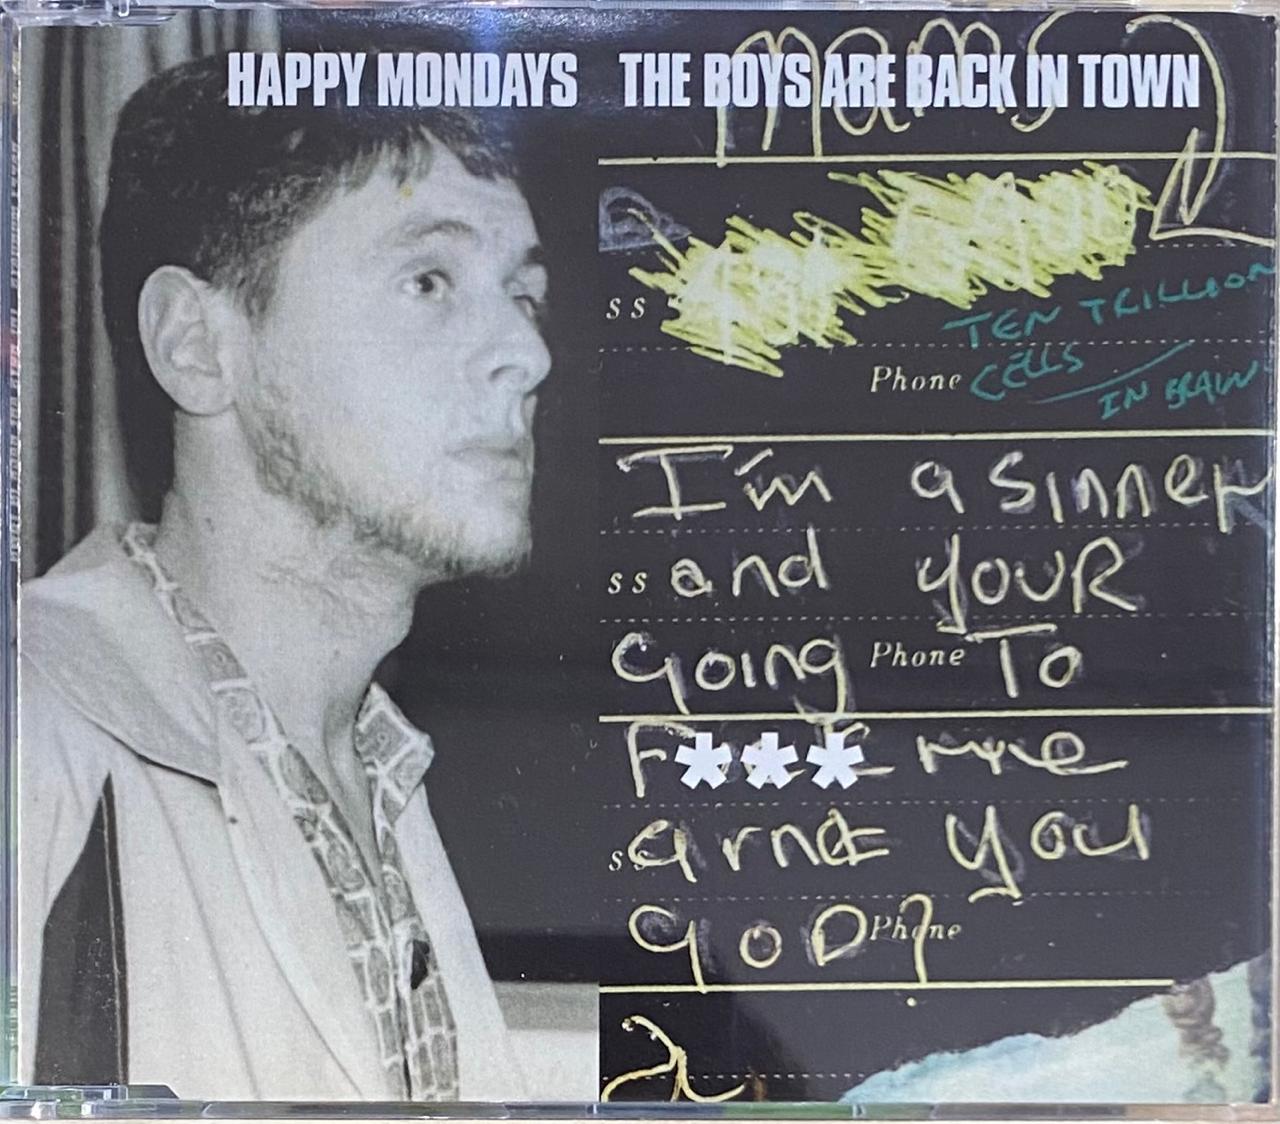 HAPPY MONDAYS THE BOYS ARE BACK IN TOWN
mams
ss
TEN TRILLION
Phone CELLS
IN BRAIN
I'm a sinner
ss and YOUR
Going Phone To
F*** me
ss arnt you
GOD? Phone